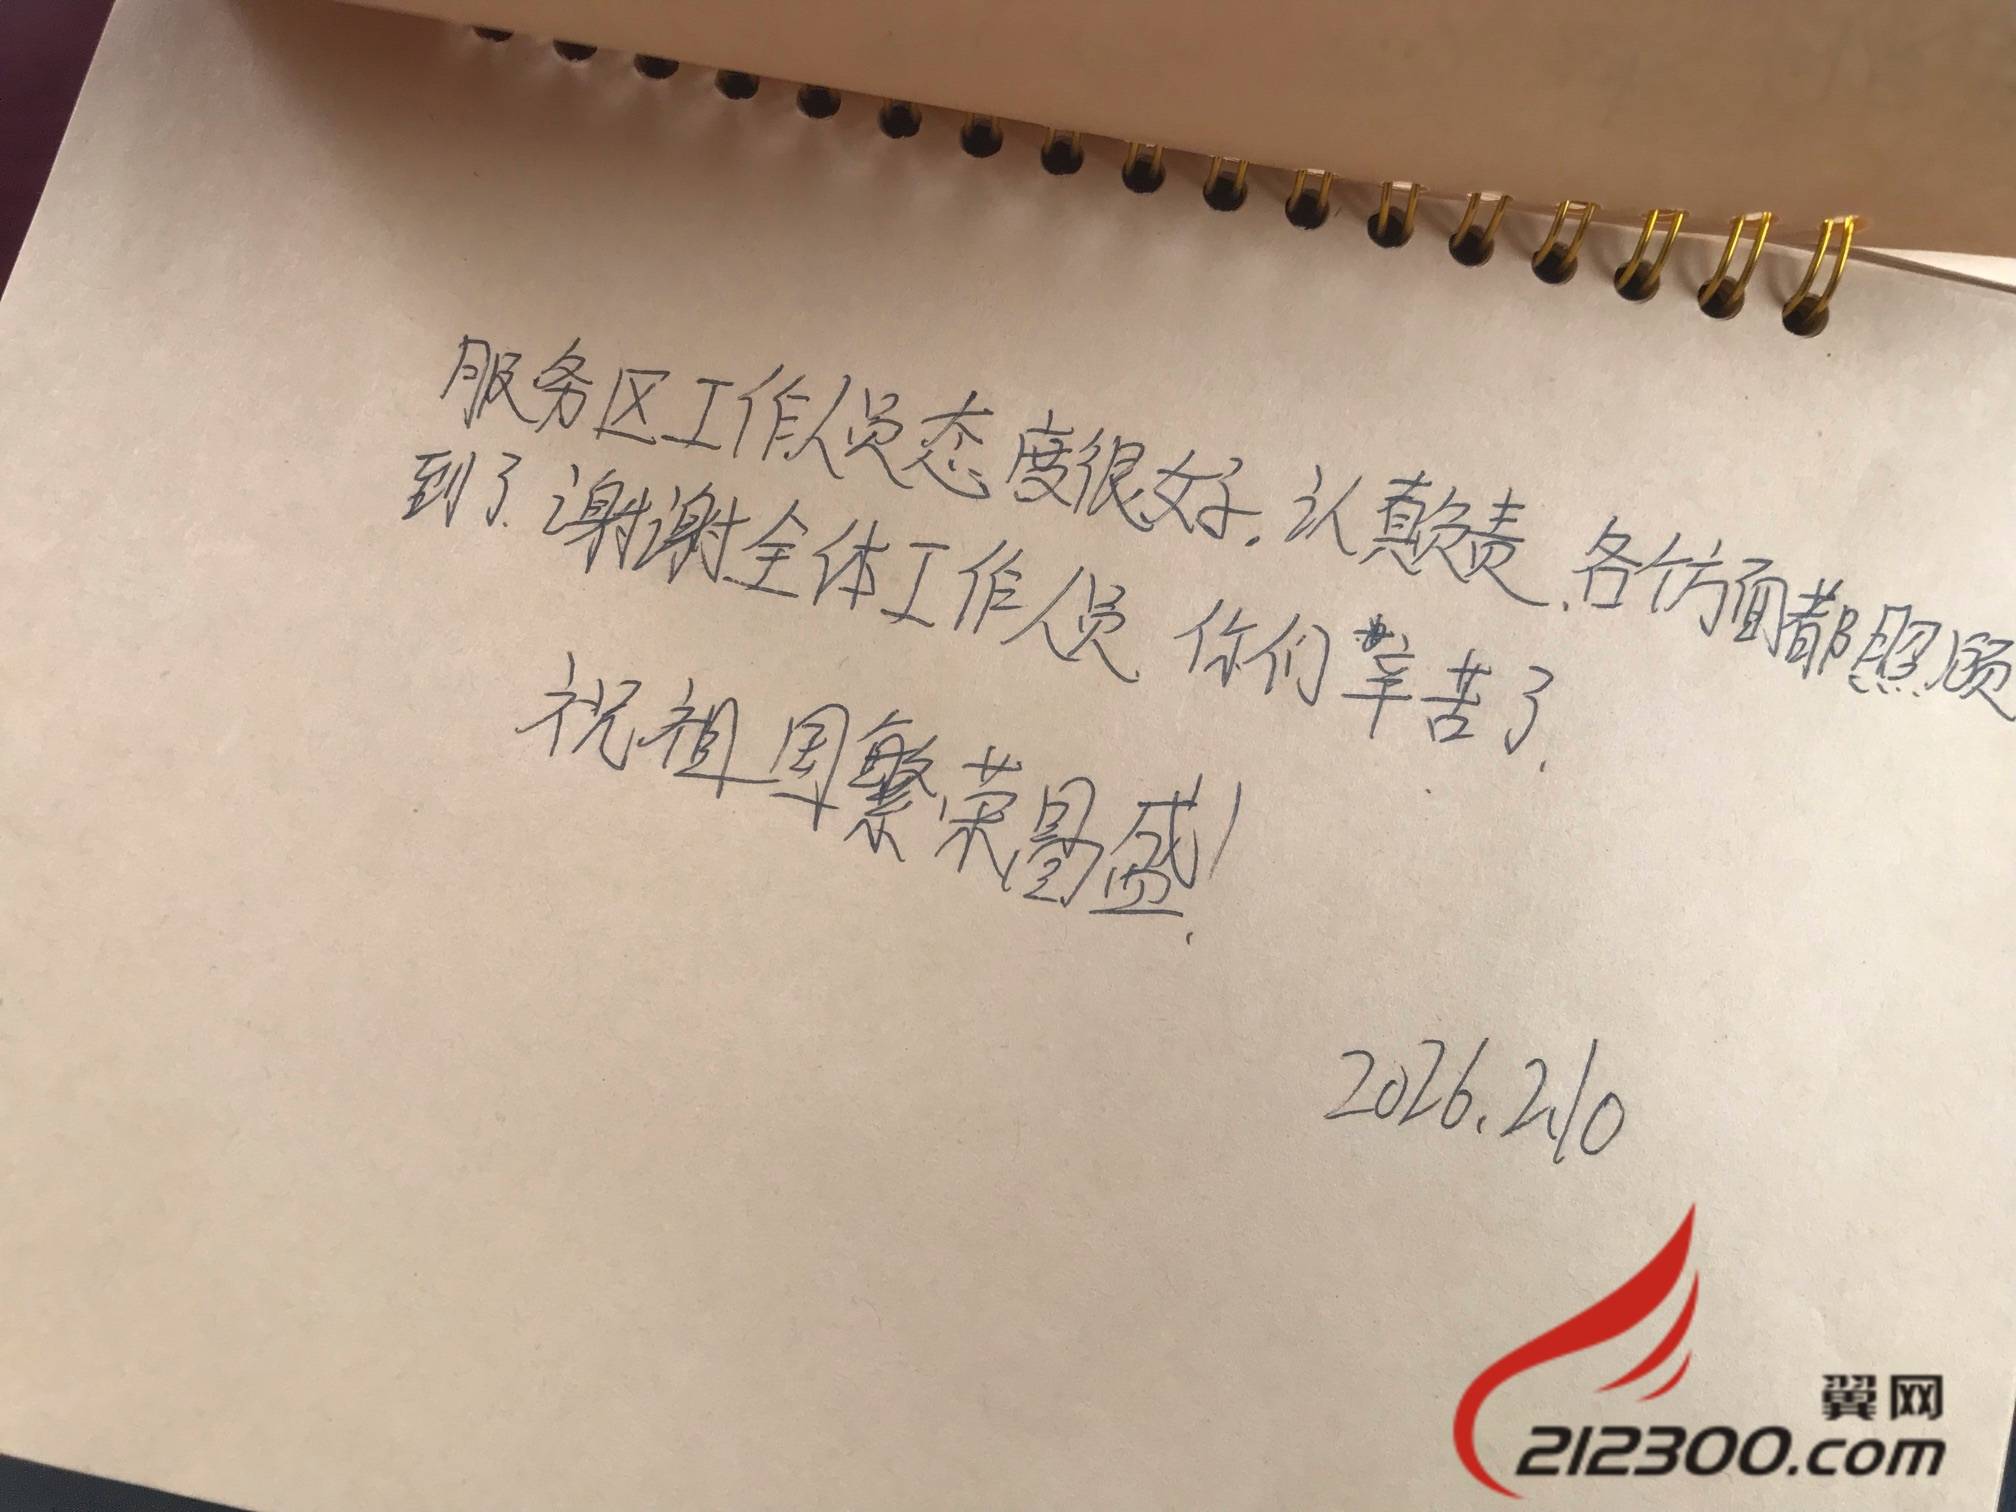 服务区工作人员态度很好.认真负责.各个方面都照顾
到了.谢谢全体工作人员.你们辛苦了.
祝祖国繁荣昌盛!
2026.2.10
翼网
212300.com